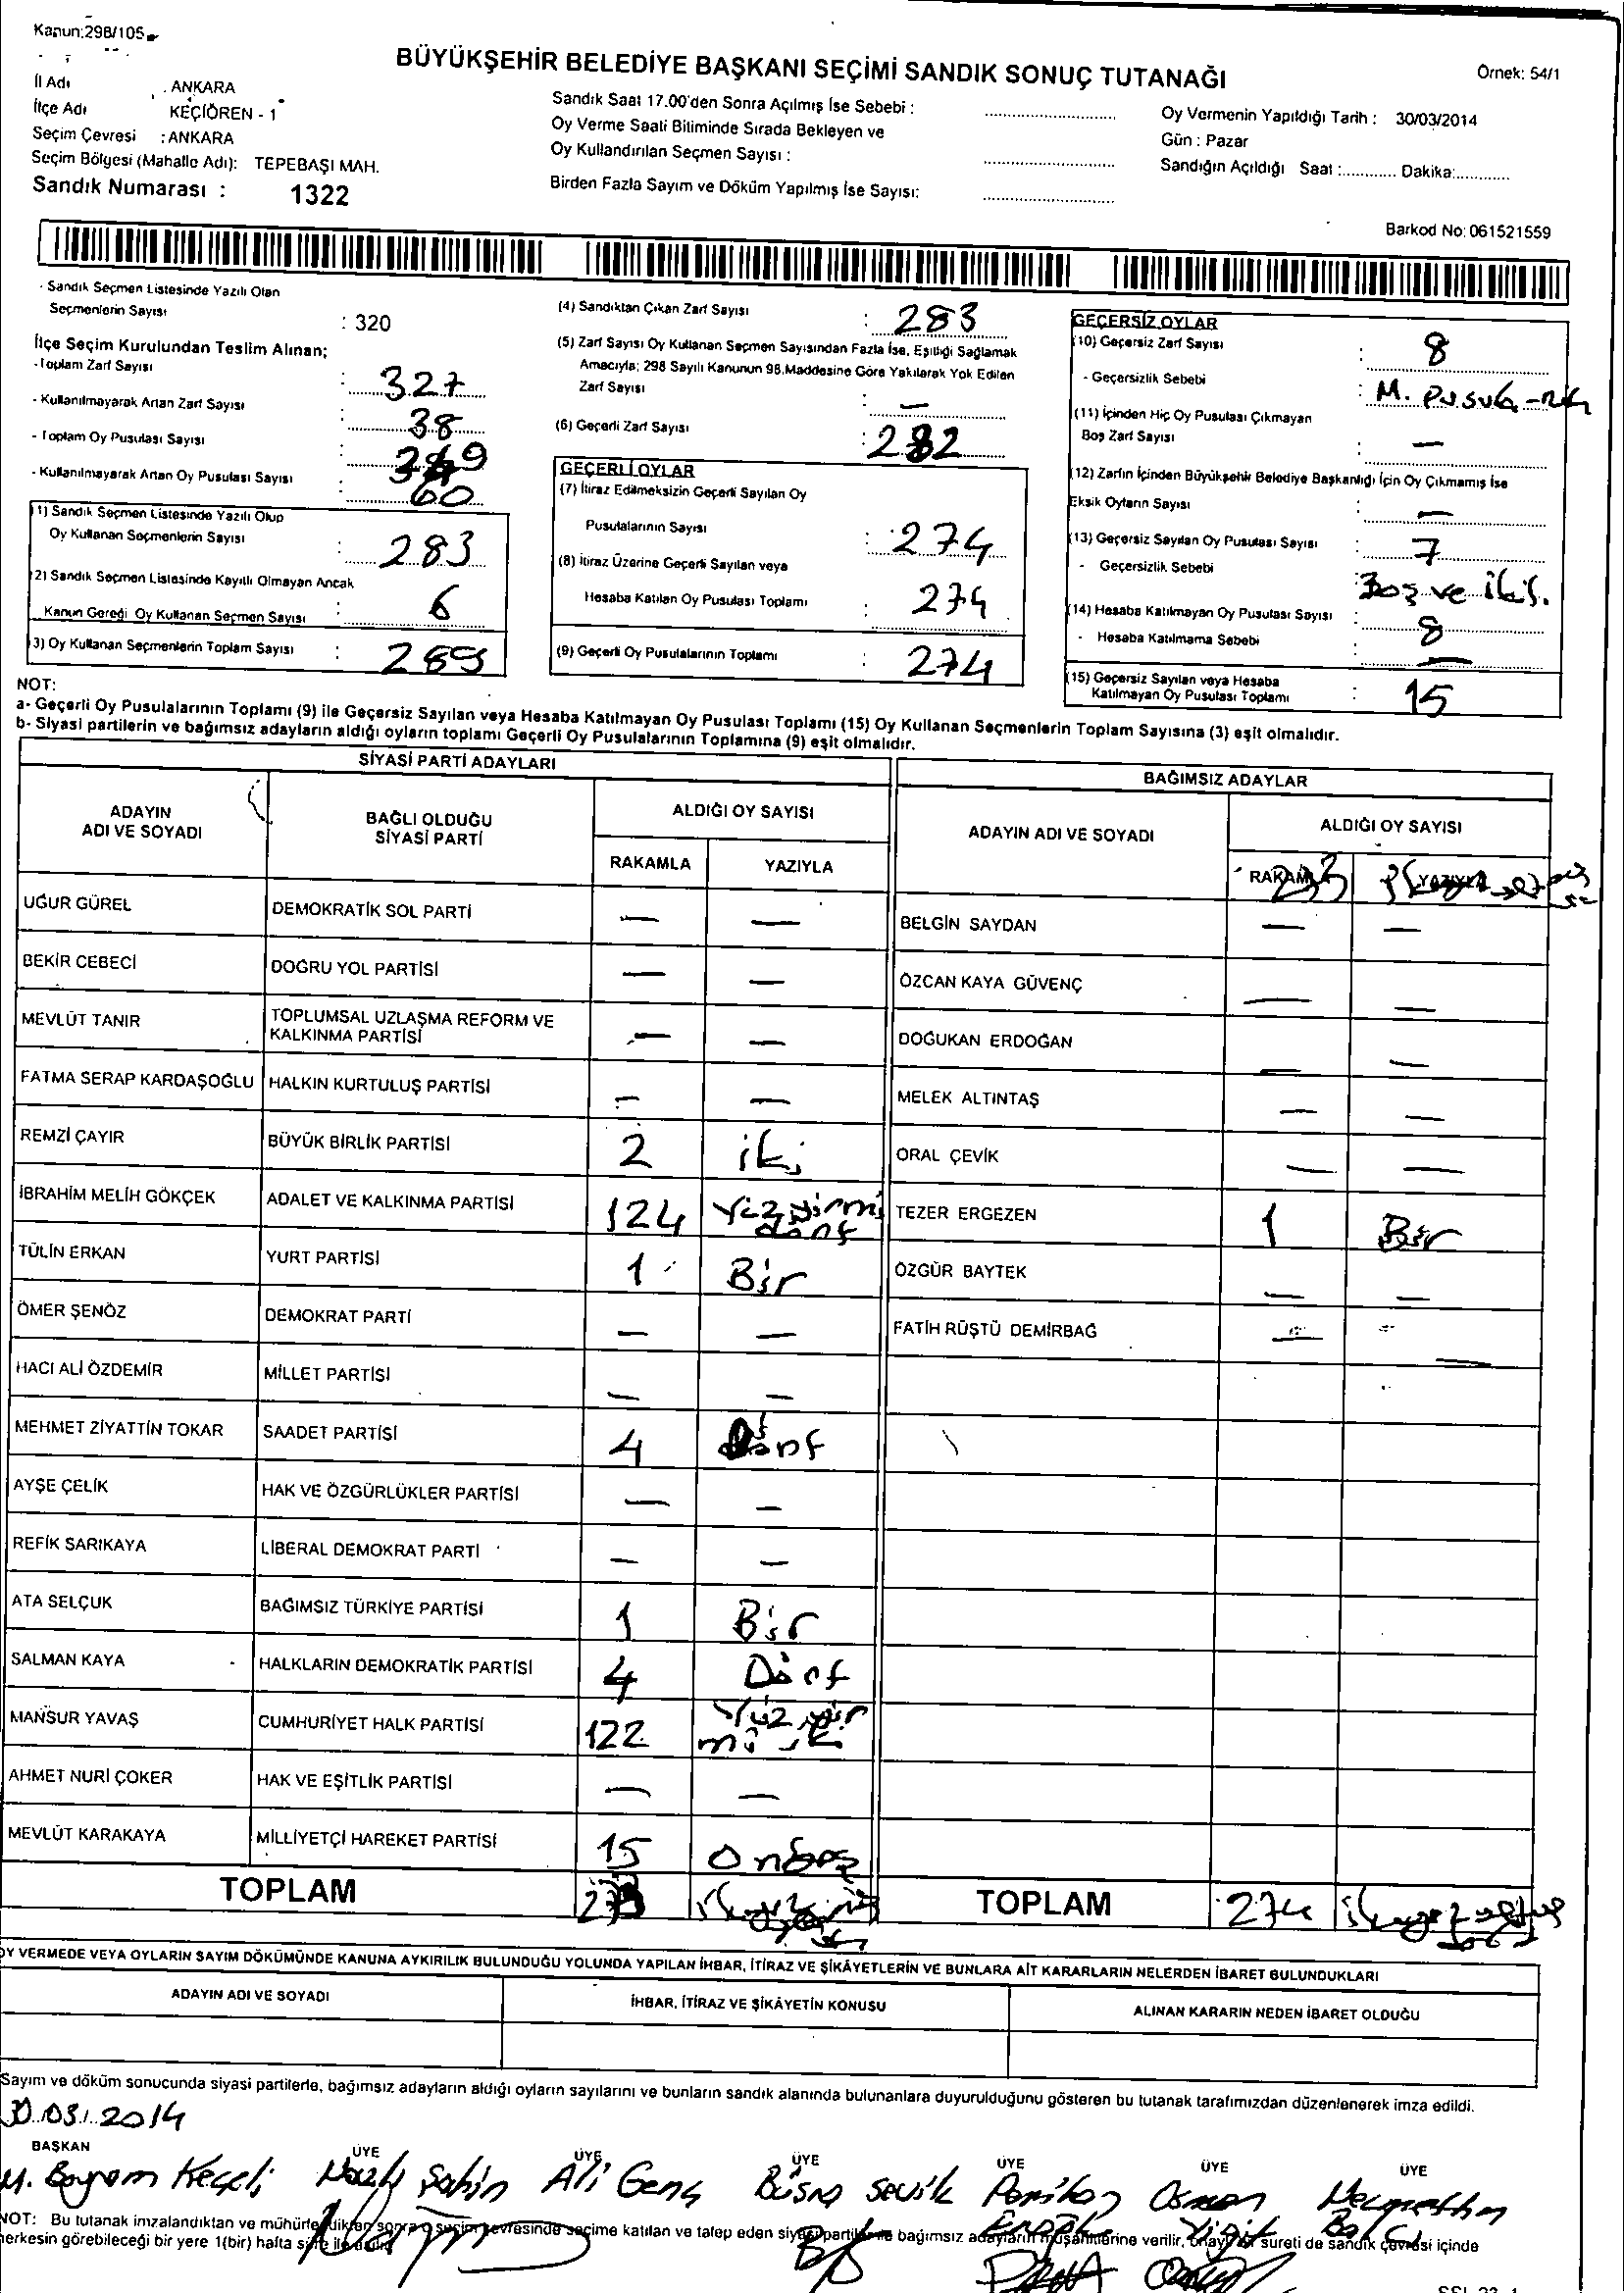 Kanun:298/105
BÜYÜKŞEHİR BELEDİYE BAŞKANI SEÇİMİ SANDIK SONUÇ TUTANAĞI
Örnek: 54/1
İl Adı : ANKARA
İlçe Adı KEÇİÖREN - 1
Seçim Çevresi : ANKARA
Seçim Bölgesi (Mahalle Adı): TEPEBAŞI MAH.
Sandık Numarası : 1322
Sandık Saat 17.00'den Sonra Açılmış İse Sebebi :
Oy Verme Saati Bitiminde Sırada Bekleyen ve
Oy Kullandırılan Seçmen Sayısı :
Birden Fazla Sayım ve Döküm Yapılmış İse Sayısı:
Oy Vermenin Yapıldığı Tarih : 30/03/2014
Gün : Pazar
Sandığın Açıldığı Saat :............ Dakika:............
Barkod No: 061521559
- Sandık Seçmen Listesinde Yazılı Olan
Seçmenlerin Sayısı : 320
İlçe Seçim Kurulundan Teslim Alınan;
- Toplam Zarf Sayısı : 327
- Kullanılmayarak Artan Zarf Sayısı : 38
- Toplam Oy Pusulası Sayısı :
- Kullanılmayarak Artan Oy Pusulası Sayısı : 60
(1) Sandık Seçmen Listesinde Yazılı Olup
Oy Kullanan Seçmenlerin Sayısı : 283
(2) Sandık Seçmen Listesinde Kayıtlı Olmayan Ancak
Kanun Gereği Oy Kullanan Seçmen Sayısı : 6
(3) Oy Kullanan Seçmenlerin Toplam Sayısı : 289
(4) Sandıktan Çıkan Zarf Sayısı : 283
(5) Zarf Sayısı Oy Kullanan Seçmen Sayısından Fazla İse, Eşitliği Sağlamak
Amacıyla; 298 Sayılı Kanunun 98.Maddesine Göre Yakılarak Yok Edilen
Zarf Sayısı : —
(6) Geçerli Zarf Sayısı : 282
GEÇERLİ OYLAR
(7) İtiraz Edilmeksizin Geçerli Sayılan Oy
Pusulalarının Sayısı : 274
(8) İtiraz Üzerine Geçerli Sayılan veya
Hesaba Katılan Oy Pusulası Toplamı : 274
(9) Geçerli Oy Pusulalarının Toplamı : 274
GEÇERSİZ OYLAR
(10) Geçersiz Zarf Sayısı : 8
- Geçersizlik Sebebi : M. pusula
(11) İçinden Hiç Oy Pusulası Çıkmayan
Boş Zarf Sayısı : —
(12) Zarfın İçinden Büyükşehir Belediye Başkanlığı İçin Oy Çıkmamış İse
Eksik Oyların Sayısı : —
(13) Geçersiz Sayılan Oy Pusulası Sayısı : 7
- Geçersizlik Sebebi : Boş ve
(14) Hesaba Katılmayan Oy Pusulası Sayısı : 8
- Hesaba Katılmama Sebebi : —
(15) Geçersiz Sayılan veya Hesaba
Katılmayan Oy Pusulası Toplamı : 15
NOT:
a- Geçerli Oy Pusulalarının Toplamı (9) ile Geçersiz Sayılan veya Hesaba Katılmayan Oy Pusulası Toplamı (15) Oy Kullanan Seçmenlerin Toplam Sayısına (3) eşit olmalıdır.
b- Siyasi partilerin ve bağımsız adayların aldığı oyların toplamı Geçerli Oy Pusulalarının Toplamına (9) eşit olmalıdır.
SİYASİ PARTİ ADAYLARI
ADAYIN ADI VE SOYADI BAĞLI OLDUĞU SİYASİ PARTİ ALDIĞI OY SAYISI
RAKAMLA YAZIYLA
UĞUR GÜREL DEMOKRATİK SOL PARTİ — —
BEKİR CEBECİ DOĞRU YOL PARTİSİ — —
MEVLÜT TANIR TOPLUMSAL UZLAŞMA REFORM VE KALKINMA PARTİSİ — —
FATMA SERAP KARDAŞOĞLU HALKIN KURTULUŞ PARTİSİ — —
REMZİ ÇAYIR BÜYÜK BİRLİK PARTİSİ 2 iki
İBRAHİM MELİH GÖKÇEK ADALET VE KALKINMA PARTİSİ 124 Yüzyirmi dört
TÜLİN ERKAN YURT PARTİSİ 1 Bir
ÖMER ŞENÖZ DEMOKRAT PARTİ — —
HACI ALİ ÖZDEMİR MİLLET PARTİSİ — —
MEHMET ZİYATTİN TOKAR SAADET PARTİSİ 4 dört
AYŞE ÇELİK HAK VE ÖZGÜRLÜKLER PARTİSİ — —
REFİK SARIKAYA LİBERAL DEMOKRAT PARTİ — —
ATA SELÇUK BAĞIMSIZ TÜRKİYE PARTİSİ 1 Bir
SALMAN KAYA HALKLARIN DEMOKRATİK PARTİSİ 4 Dört
MANSUR YAVAŞ CUMHURİYET HALK PARTİSİ 122 Yüzyirmi iki
AHMET NURİ ÇOKER HAK VE EŞİTLİK PARTİSİ — —
MEVLÜT KARAKAYA MİLLİYETÇİ HAREKET PARTİSİ 15 Onbeş
TOPLAM 273
BAĞIMSIZ ADAYLAR
ADAYIN ADI VE SOYADI ALDIĞI OY SAYISI
RAKAMLA YAZIYLA
BELGİN SAYDAN — —
ÖZCAN KAYA GÜVENÇ — —
DOĞUKAN ERDOĞAN — —
MELEK ALTINTAŞ — —
ORAL ÇEVİK — —
TEZER ERGEZEN 1 Bir
ÖZGÜR BAYTEK — —
FATİH RÜŞTÜ DEMİRBAĞ — —
TOPLAM 274
OY VERMEDE VEYA OYLARIN SAYIM DÖKÜMÜNDE KANUNA AYKIRILIK BULUNDUĞU YOLUNDA YAPILAN İHBAR, İTİRAZ VE ŞİKÂYETLERİN VE BUNLARA AİT KARARLARIN NELERDEN İBARET BULUNDUKLARI
ADAYIN ADI VE SOYADI İHBAR, İTİRAZ VE ŞİKÂYETİN KONUSU ALINAN KARARIN NEDEN İBARET OLDUĞU
Sayım ve döküm sonucunda siyasi partilerle, bağımsız adayların aldığı oyların sayılarını ve bunların sandık alanında bulunanlara duyurulduğunu gösteren bu tutanak tarafımızdan düzenlenerek imza edildi.
30.03.2014
BAŞKAN ÜYE ÜYE ÜYE ÜYE ÜYE ÜYE
M. Bayram Keçeli Nazlı Şahin Ali Genç Büşra Sevik Perihan Osman Yiğit Necmettin
NOT: Bu tutanak imzalandıktan ve mühürlendikten sonra o seçim çevresinde seçime katılan ve talep eden siyasi partiler ile bağımsız adayların müşahitlerine verilir, onaylı bir sureti de sandık çevresi içinde
herkesin görebileceği bir yere 1(bir) hafta süre ile asılır.